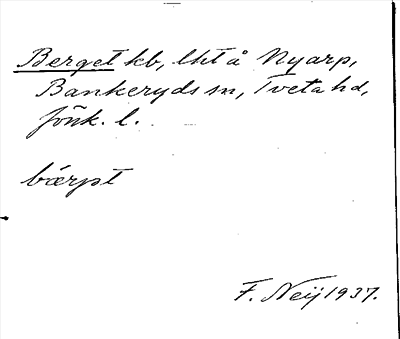 Berget kb, lht å Nyarp,
Bankeryds sn, Tveta hd,
Jönk. l.
bærpt
F. Neij 1937.